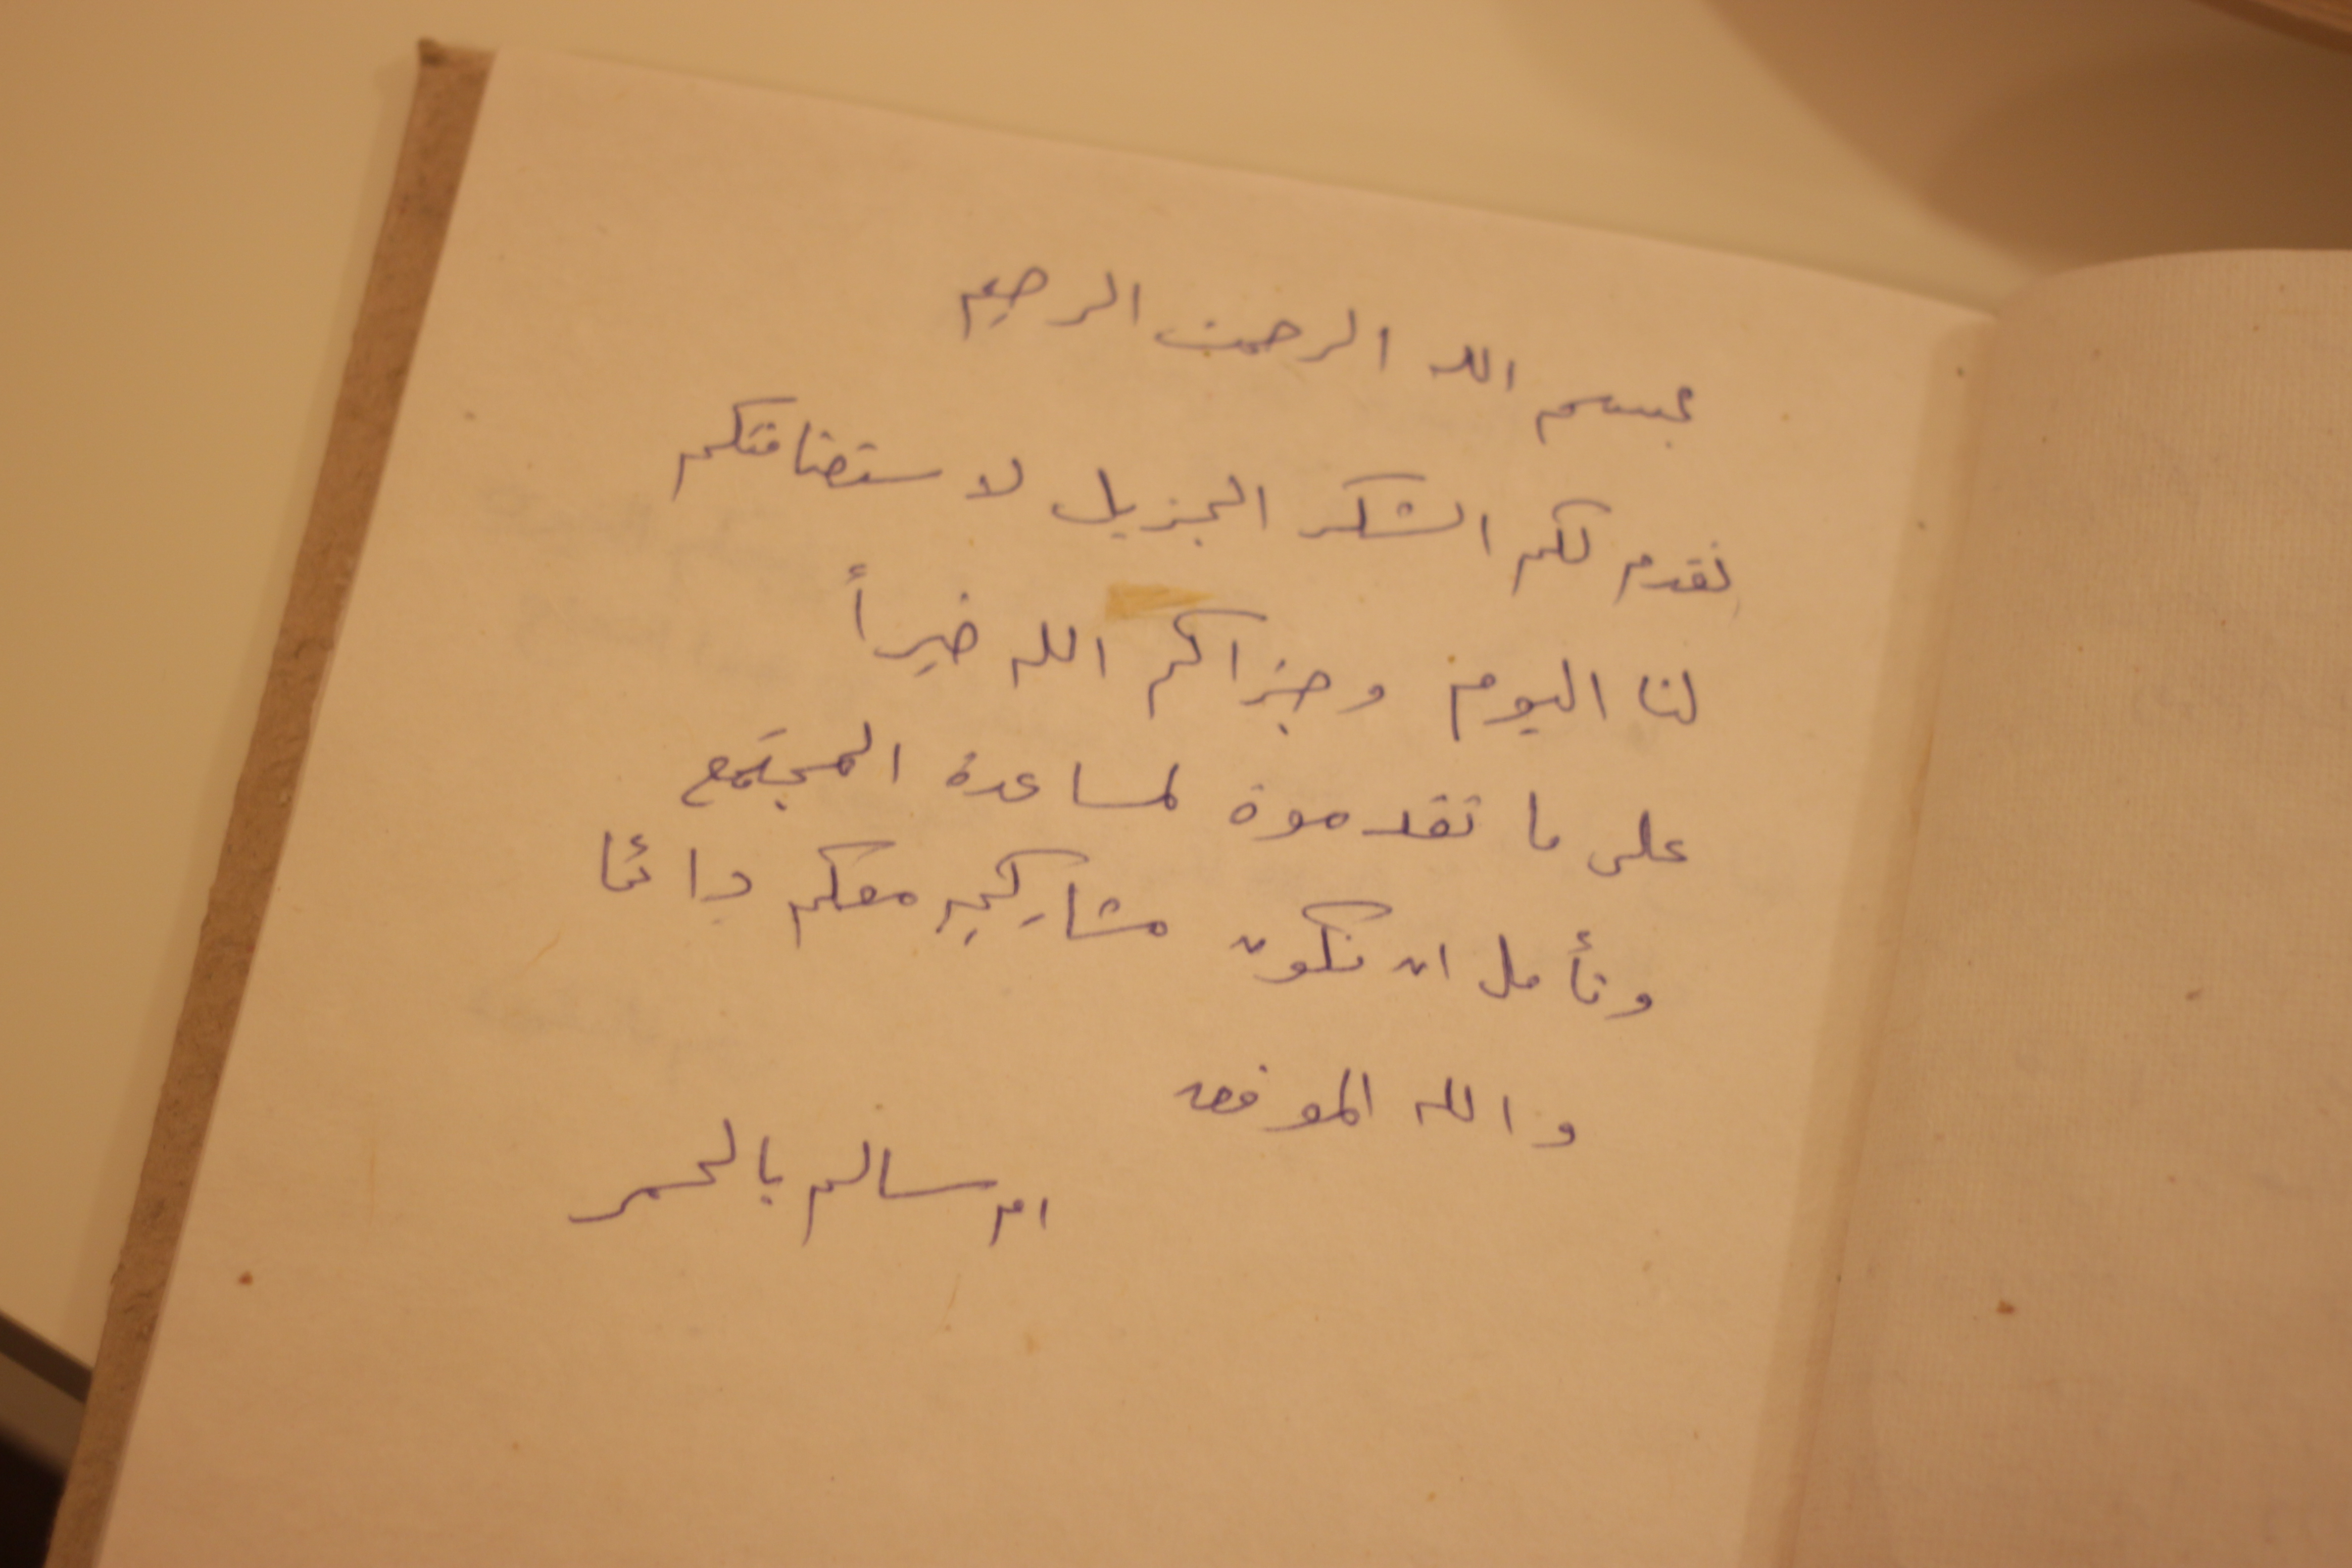 بسم الله الرحمن الرحيم
نقدم لكم الشكر الجزيل لاستضافتكم
لنا اليوم وجزاكم الله خيراً
على ما تقدموة لمساعدة المجتمع
ونأمل ان نكون مشاركين معكم دائما
والله الموفق
ام سالم بالحمر